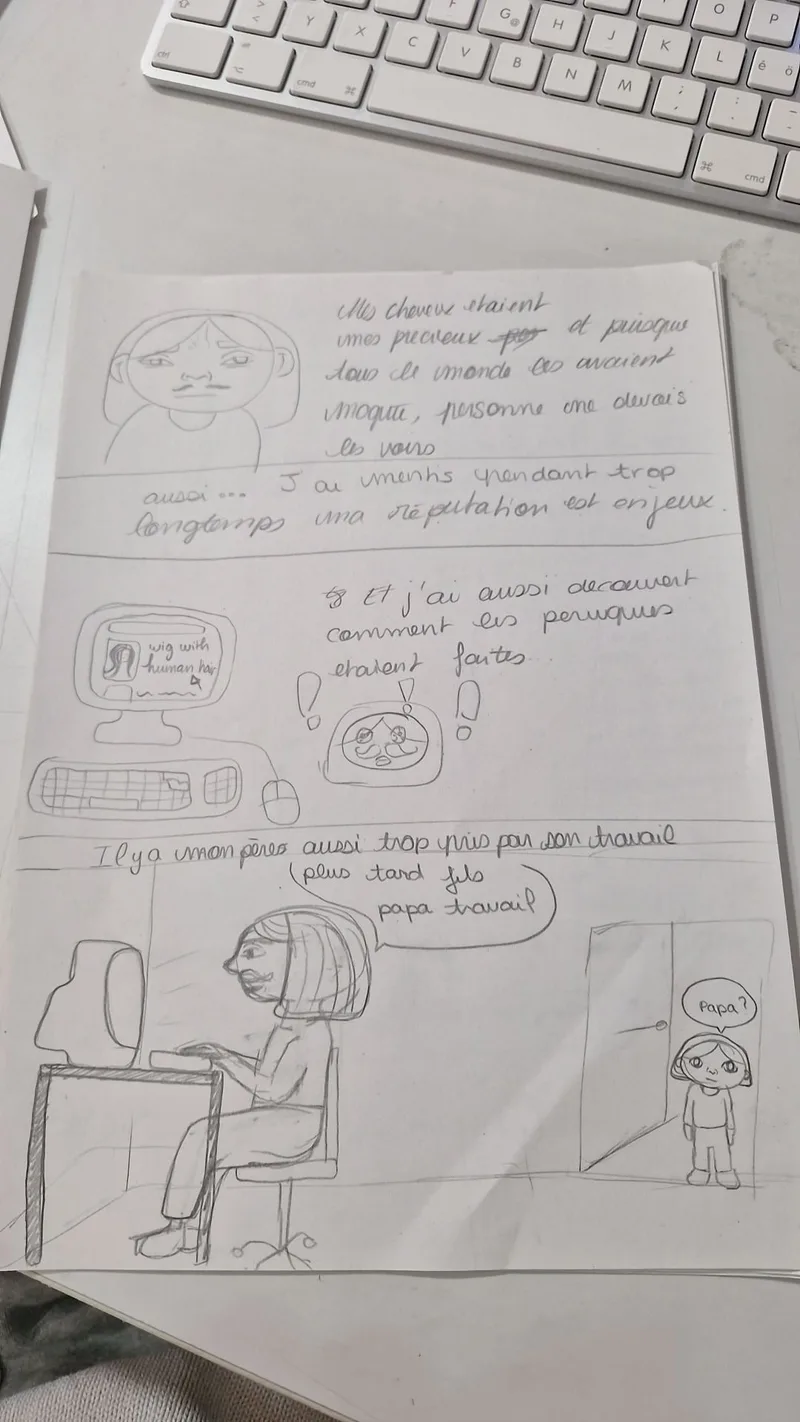 O
P
F
G
@
H
J
K
L
é ö
>
<
Y
X
C
V
B
N
M
;
,
:
.
-
ctrl
cmd ⌘
⌘ cmd
Mes cheveux etaient
mes precieux et puisque
tous le monde les avaient
moque, personne me devais
les voirs
aussi... J'ai mentis pendant trop
longtemps ma réputation est enjeux.
Et j'ai aussi decouvert
comment les perruques
etaient faites.
wig with
human hair
! ! !
Il y a mon pères aussi trop pris par son travail
plus tard fils
papa travail
Papa?